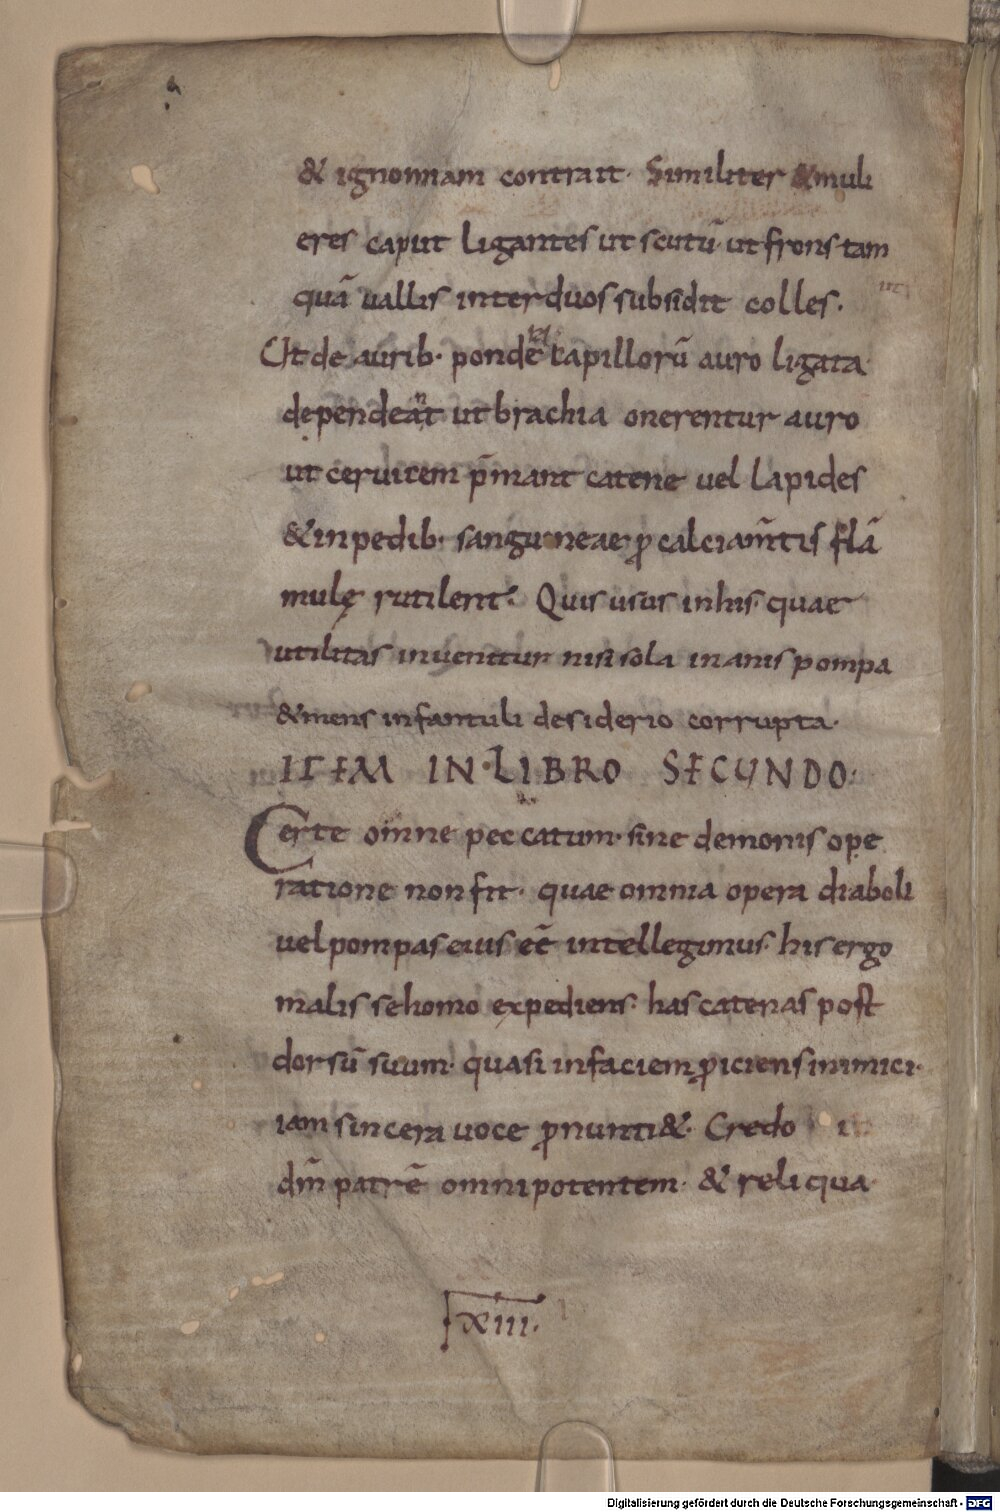 & ignominiam contrait· Similiter & muli
eres caput ligantes ut scutū· ut frons tam
quā vallis inter duos subsidit colles·
Ut de aurib· pondē capillorū auro ligata
dependeāt ut brachia onerentur auro
ut cervicem p̄mant catene vel lapides
& in pedib· sanguineae ꝓ calciam̄tis flā
mulę rutilent· Quis usus in his· quae
utilitas invenitur nisi sola inanis pompa
& mens infantuli desiderio corrupta·
ITEM IN LIBRO SECUNDO·
Certe omne peccatum· sine demonis ope
ratione non fit· quae omnia opera diaboli
vel pompas eius eē intellegimus· his ergo
malis se homo expediens· has catenas post
dorsū suum· quasi in faciem ꝓiciens inimici·
iam sincera voce ꝓnunti&· Credo in
dm̄ patrē omnipotentem· & reliqua·
xiii·
Digitalisierung gefördert durch die Deutsche Forschungsgemeinschaft - DFG